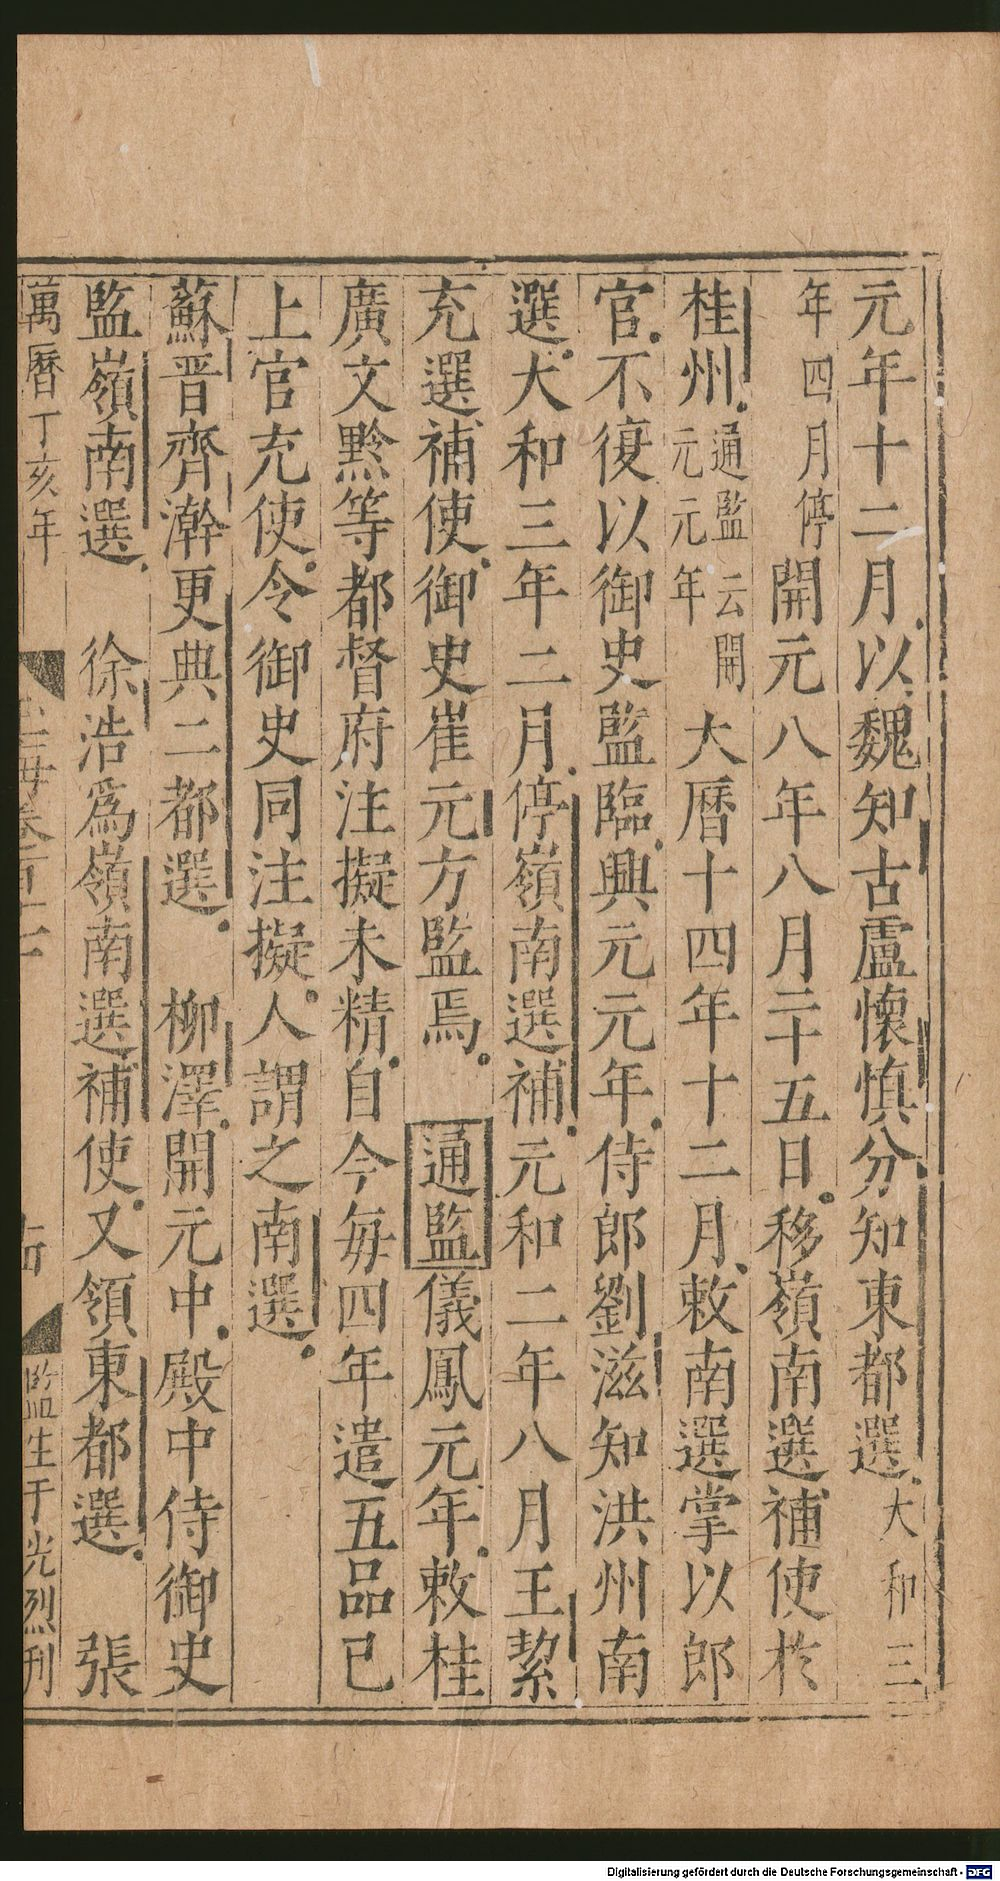 元年十二月以魏知古盧懷慎分知東都選大和三
年四月停開元八年八月二十五日移嶺南選補使於
桂州通監云開元元年大曆十四年十二月敕南選掌以郎
官不復以御史監臨興元元年侍郎劉滋知洪州南
選大和三年二月停嶺南選補元和二年八月王絜
充選補使御史崔元方監焉 通監儀鳳元年敕桂
廣文黔等都督府注擬未精自今每四年遣五品已
上官充使令御史同注擬人謂之南選
蘇晋齊澣更典二都選 柳澤開元中殿中侍御史
監嶺南選 徐浩爲嶺南選補使又領東都選 張
萬曆丁亥年
監生于光烈刊
Digitalisierung gefördert durch die Deutsche Forschungsgemeinschaft - DFG